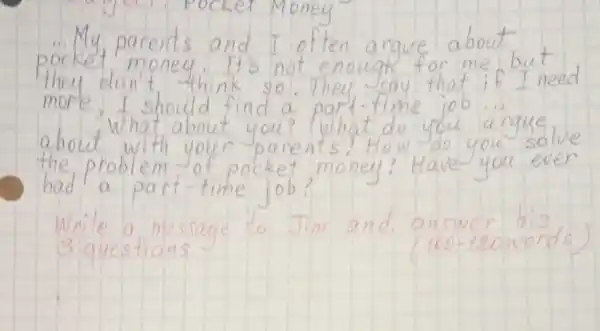 Subject: Pocket Money
... My parents and I often argue about
pocket money. It's not enough for me, but
they don't think so. They say that if I need
more, I should find a part-time job ...
What about you? What do you argue
about with your parents? How do you solve
the problem of pocket money? Have you ever
had a part-time job?
Write a message to Jim and answer his
3 questions (100-120 words)